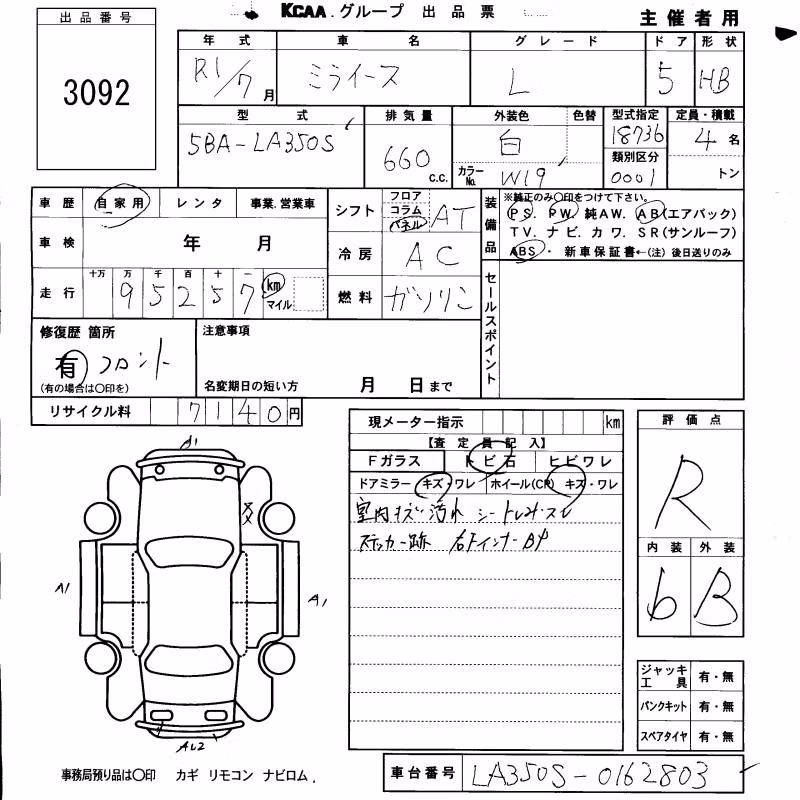 出品番号
3092
KCAA.グループ 出品票
主催者用
年式 車名 グレード ドア 形状
R1/7月 ミライース L 5 HB
型式 排気量 外装色 色替 型式指定 定員・積載
5BA-LA350S 660c.c. 白 18736 4名
カラーNo. W19 類別区分 0001 トン
車歴 自家用 レンタ 事業.営業車
車検 年 月
走行 十万 万 千 百 十 一
95257 km マイル
シフト フロア コラム パネル AT
冷房 AC
燃料 ガソリン
装備品 ※純正のみ〇印をつけて下さい。
PS. PW. 純AW. AB(エアバック)
TV. ナビ. カワ. SR(サンルーフ)
ABS・ 新車保証書←(注) 後日送りのみ
セールスポイント
修復歴 箇所
有 フロント
(有の場合は〇印を)
注意事項
名変期日の短い方 月 日まで
リサイクル料 7140円
現メーター指示 km
【査定員記入】
Fガラス トビ石 ヒビワレ
ドアミラー キズ・ワレ ホイール(CP) キズ・ワレ
室内キズ・汚れ シートしみ・スレ
ステッカー跡
評価点
R
内装 外装
6 B
A1
A1
A1
AL2
ジャッキ工具 有・無
パンクキット 有・無
スペアタイヤ 有・無
事務局預り品は〇印 カギ リモコン ナビロム.
車台番号 LA350S-0162803